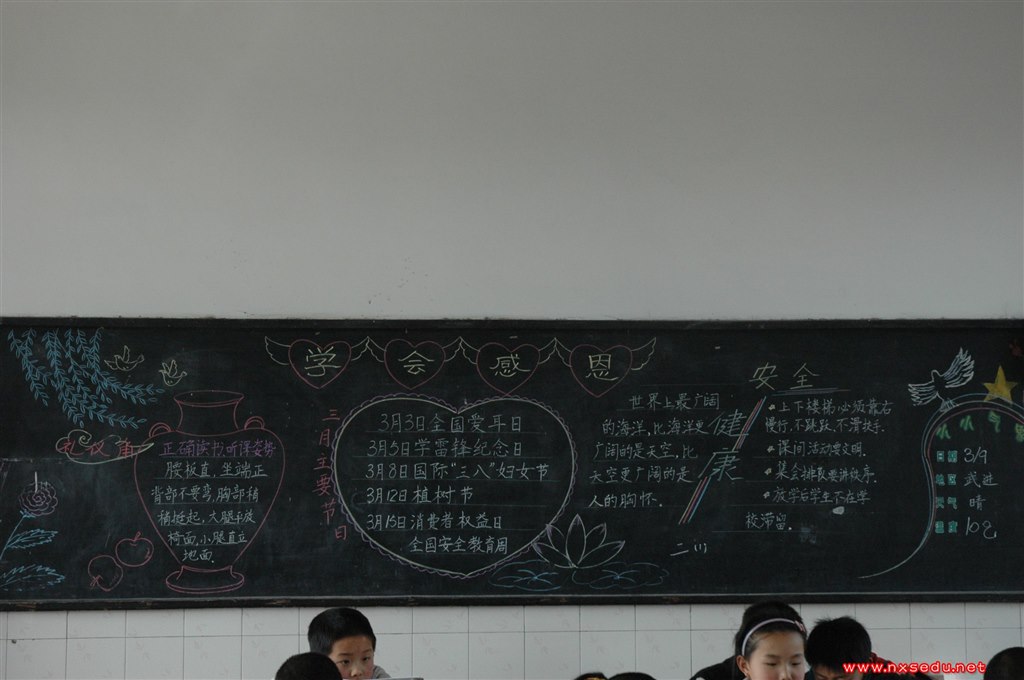 学会感恩
礼仪角
正确读书,听课姿势
腰板直,坐端正
背部不要弯,胸部稍
稍挺起,大腿平放
椅面,小腿直立
地面.
三月主要节日
3月3日全国爱耳日
3月5日学雷锋纪念日
3月8日国际“三八”妇女节
3月12日植树节
3月15日消费者权益日
全国安全教育周
世界上最广阔
的海洋,比海洋更
广阔的是天空,比
天空更广阔的是
人的胸怀.
健康
二(1)
安全
上下楼梯必须靠右
慢行,不跳跃,不滑扶手.
课间活动要文明.
集会排队要讲秩序.
放学后学生不在学
校滞留.
小小气
日期 3/9
地区 武进
天气 晴
温度 10℃
www.nxsedu.net